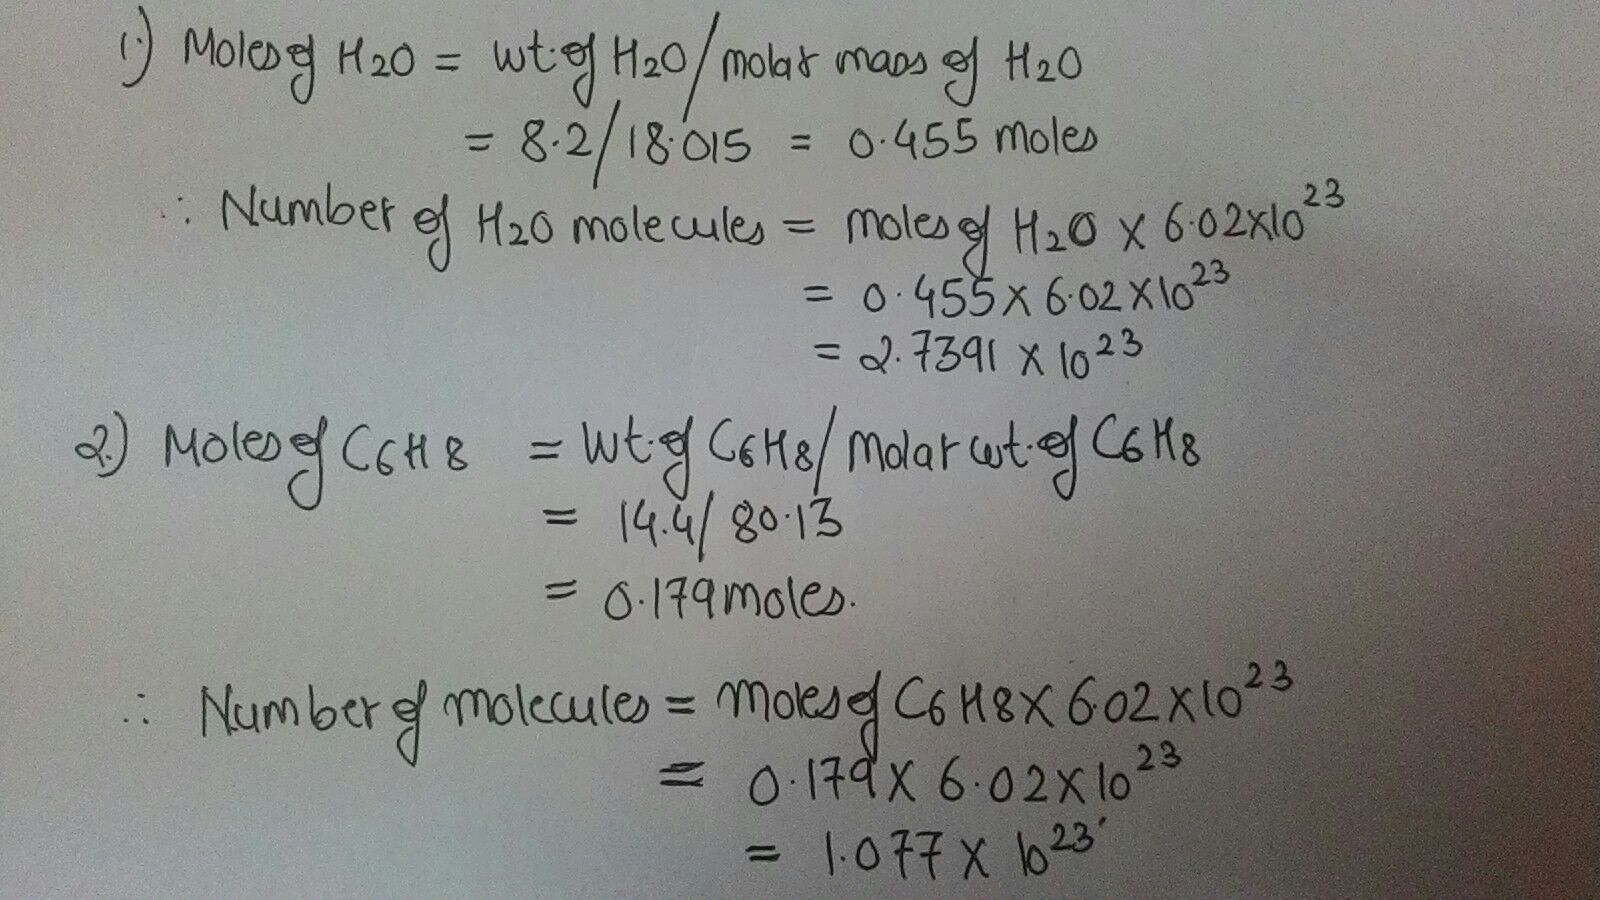 1.) Moles of H2O = wt. of H2O/molar mass of H2O
= 8.2/18.015 = 0.455 moles
∴ Number of H2O molecules = moles of H2O x 6.02x10^23
= 0.455 x 6.02 x 10^23
= 2.7391 x 10^23
2.) Moles of C6H8 = Wt. of C6H8/Molar wt. of C6H8
= 14.4/80.13
= 0.179 moles.
∴ Number of molecules = Moles of C6H8 x 6.02 x 10^23
= 0.179 x 6.02 x 10^23
= 1.077 x 10^23